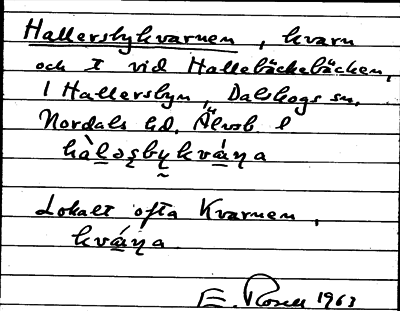 Hallersbykvarnen, kvarn
och I vid Hallebäckebäcken,
I Hallersbyn, Dalskogs sn,
Nordals hd, Älvsb l
Lokalt ofta Kvarnen,
E. Rosell 1963